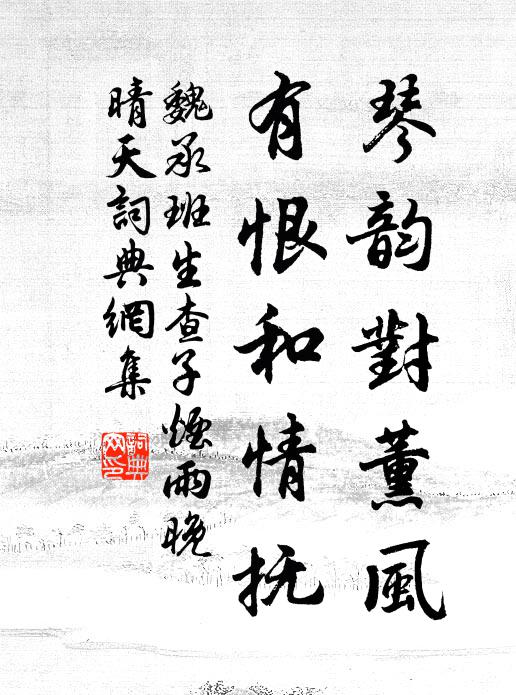 琴韵對薰風
有恨和情抚
魏承班生查子煙雨晚
晴天詞典網集